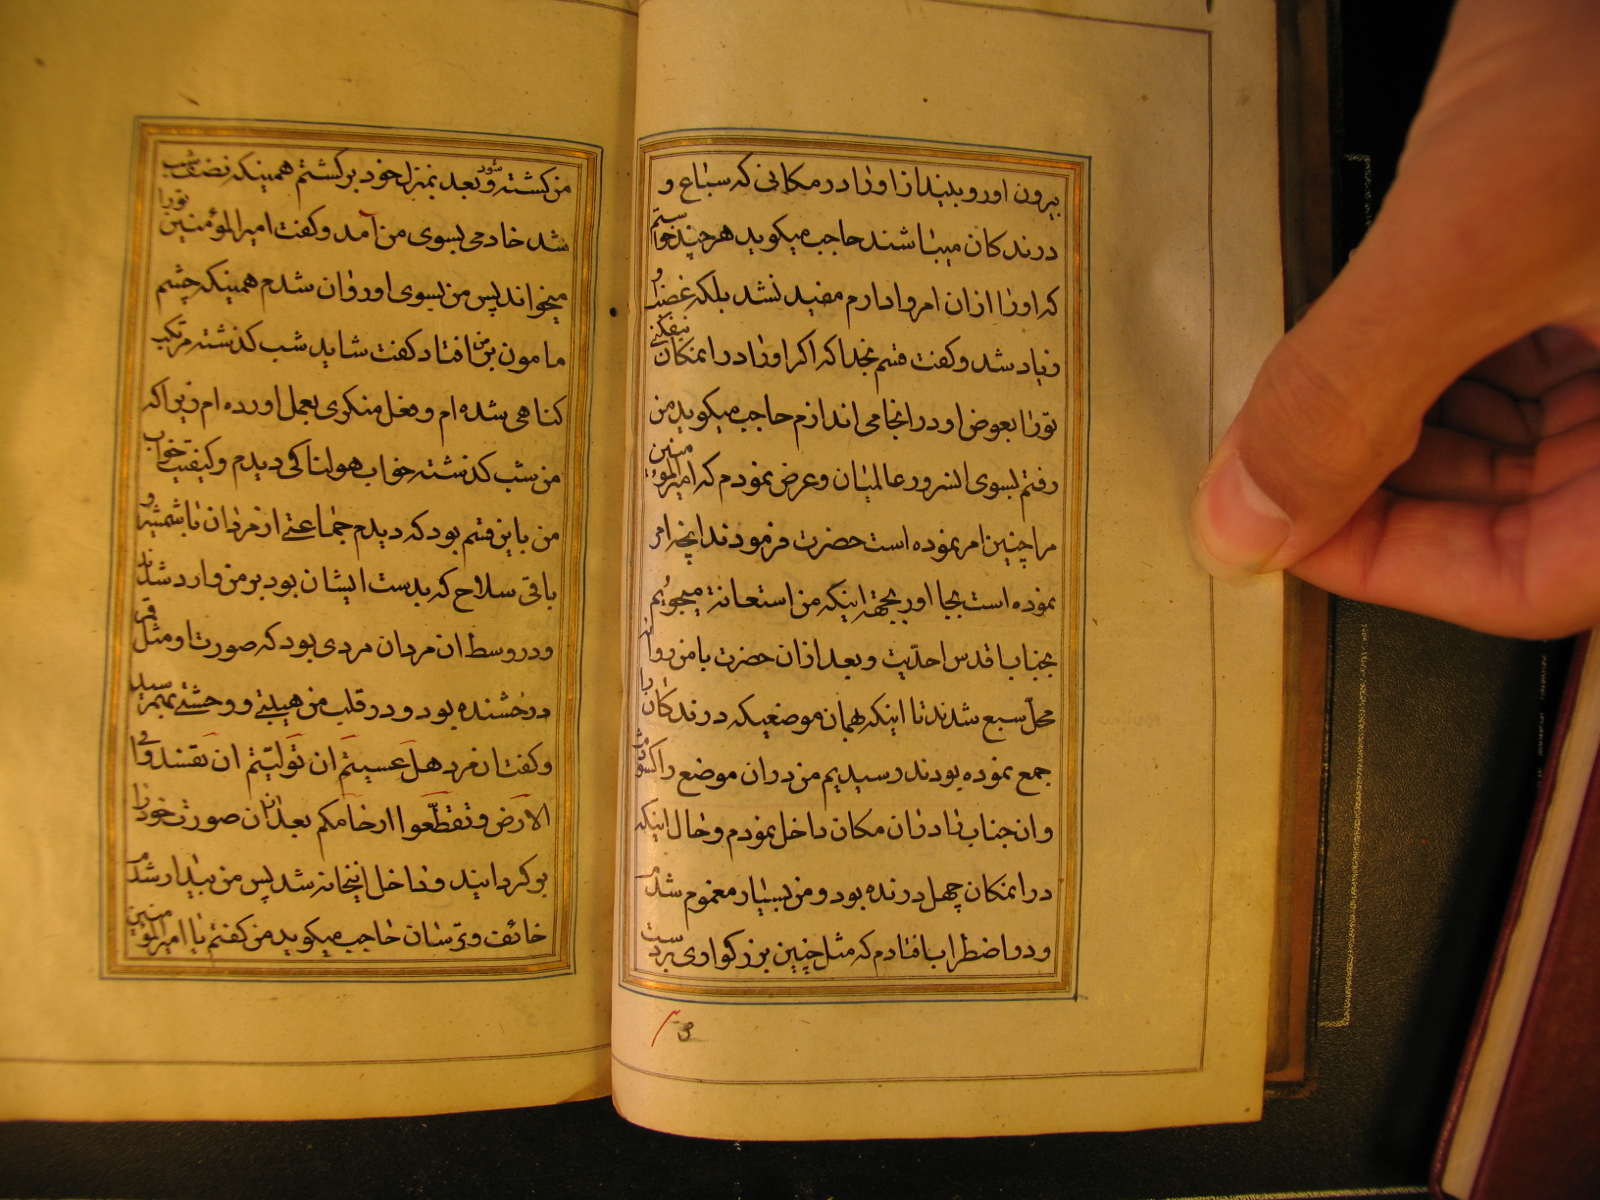 بیرون اورو بیندازاورا در مکانی که سباع و
درندکان میباشند حاجب میکوید هرچند خواستم
که اورا ازان امر وادارم مفید نشد بلکه غضب او
زیاد شد وکفت قسم بخدا که اکر اورا در انمکان نیفکنی
تورا بعوض او در انجا می اندازم حاجب میکوید من
رفتم بسوی انسرور عالمیان و عرض نمودم که امیرالمؤمنین
مرا چنین امر نموده است حضرت فرمودند انچه امر
نموده است بجا اور بجهة اینکه من استعانة میجویم
بجناب اقدس احدیت و بعد ازان حضرت با من روانه
محل سبع شدند تا اینکه بهمان موضعیکه درندکان را
جمع نموده بودند رسیدیم من در ان موضع را کشودم
وان جناب را دران مکان داخل نمودم و حال اینکه
در انمکان چهل درنده بود و من بسیار مغموم شدم
و در اضطراب افتادم که مثل چنین بزرکواری بر دست
من کشته شود و بعد بمنزل خود برکشتم همینکه نصف شب
شد خادمی بسوی من آمد وکفت امیرالمؤمنین تورا
میخواند پس من بسوی او روان شدم همینکه چشم
مامون بر من افتاد کفت شاید شب کذشته مرتکب
کناهی شده ام و فعل منکری بعمل اورده ام زیرا که
من شب کذشته خواب هولناکی دیدم و کیفیت خواب
من باین قسم بود که دیدم جماعتی از مردان با شمشیر و
باقی سلاح که بدست ایشان بود بر من وارد شدند
و در وسط ان مردان مردی بود که صورت او مثل قمر
درخشنده بود و در قلب من هیبتی و وحشتی بهمرسید
وکفت ان مرد هل عسیتم ان تولیتم ان تفسدوا فی
الارض وتقطعوا ارحامکم بعد ازان صورت خود را
بر کردانید و داخل اینخانه شد پس من بیدار شدم
خائف و ترسان حاجب میکوید من کفتم یا امیرالمؤمنین